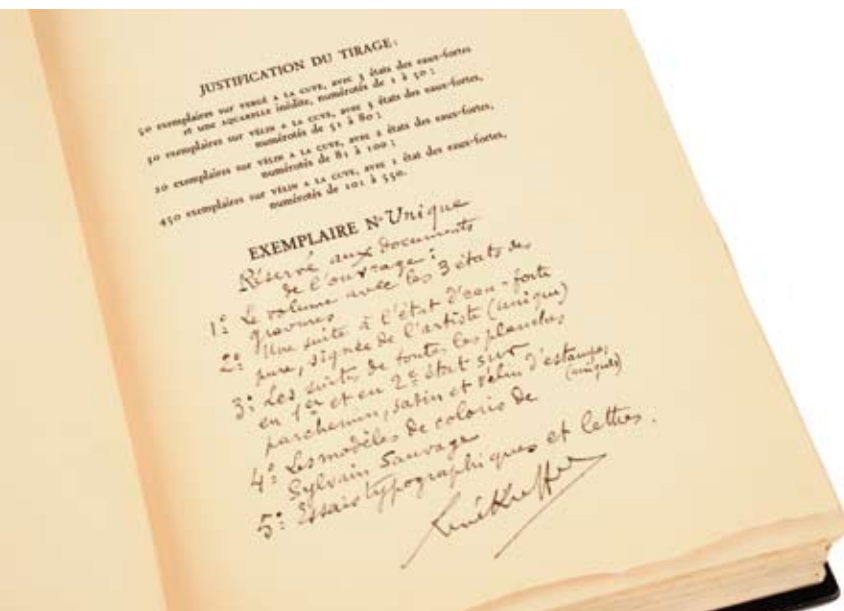 JUSTIFICATION DU TIRAGE:
50 exemplaires sur VERGÉ A LA CUVE, avec 3 états des eaux-fortes
et une AQUARELLE inédite, numérotés de 1 à 50 ;
30 exemplaires sur VÉLIN A LA CUVE, avec 3 états des eaux-fortes,
numérotés de 51 à 80 ;
20 exemplaires sur VÉLIN A LA CUVE, avec 2 états des eaux-fortes,
numérotés de 81 à 100 ;
450 exemplaires sur VÉLIN A LA CUVE, avec 1 état des eaux-fortes,
numérotés de 101 à 550.
EXEMPLAIRE N° Unique
Réservé aux documents
de l'ouvrage :
1º Le volume avec les 3 états des
gravures
2º Une suite à l'état d'eau-forte
pure, signée de l'artiste (unique)
3º Les suites de toutes les planches
en 1er et en 2e état sur
parchemin, satin et vélin d'estampe,
(uniques)
4º Les modèles de coloris de
Sylvain Sauvage
5º Essais typographiques et lettres.
René Kieffer